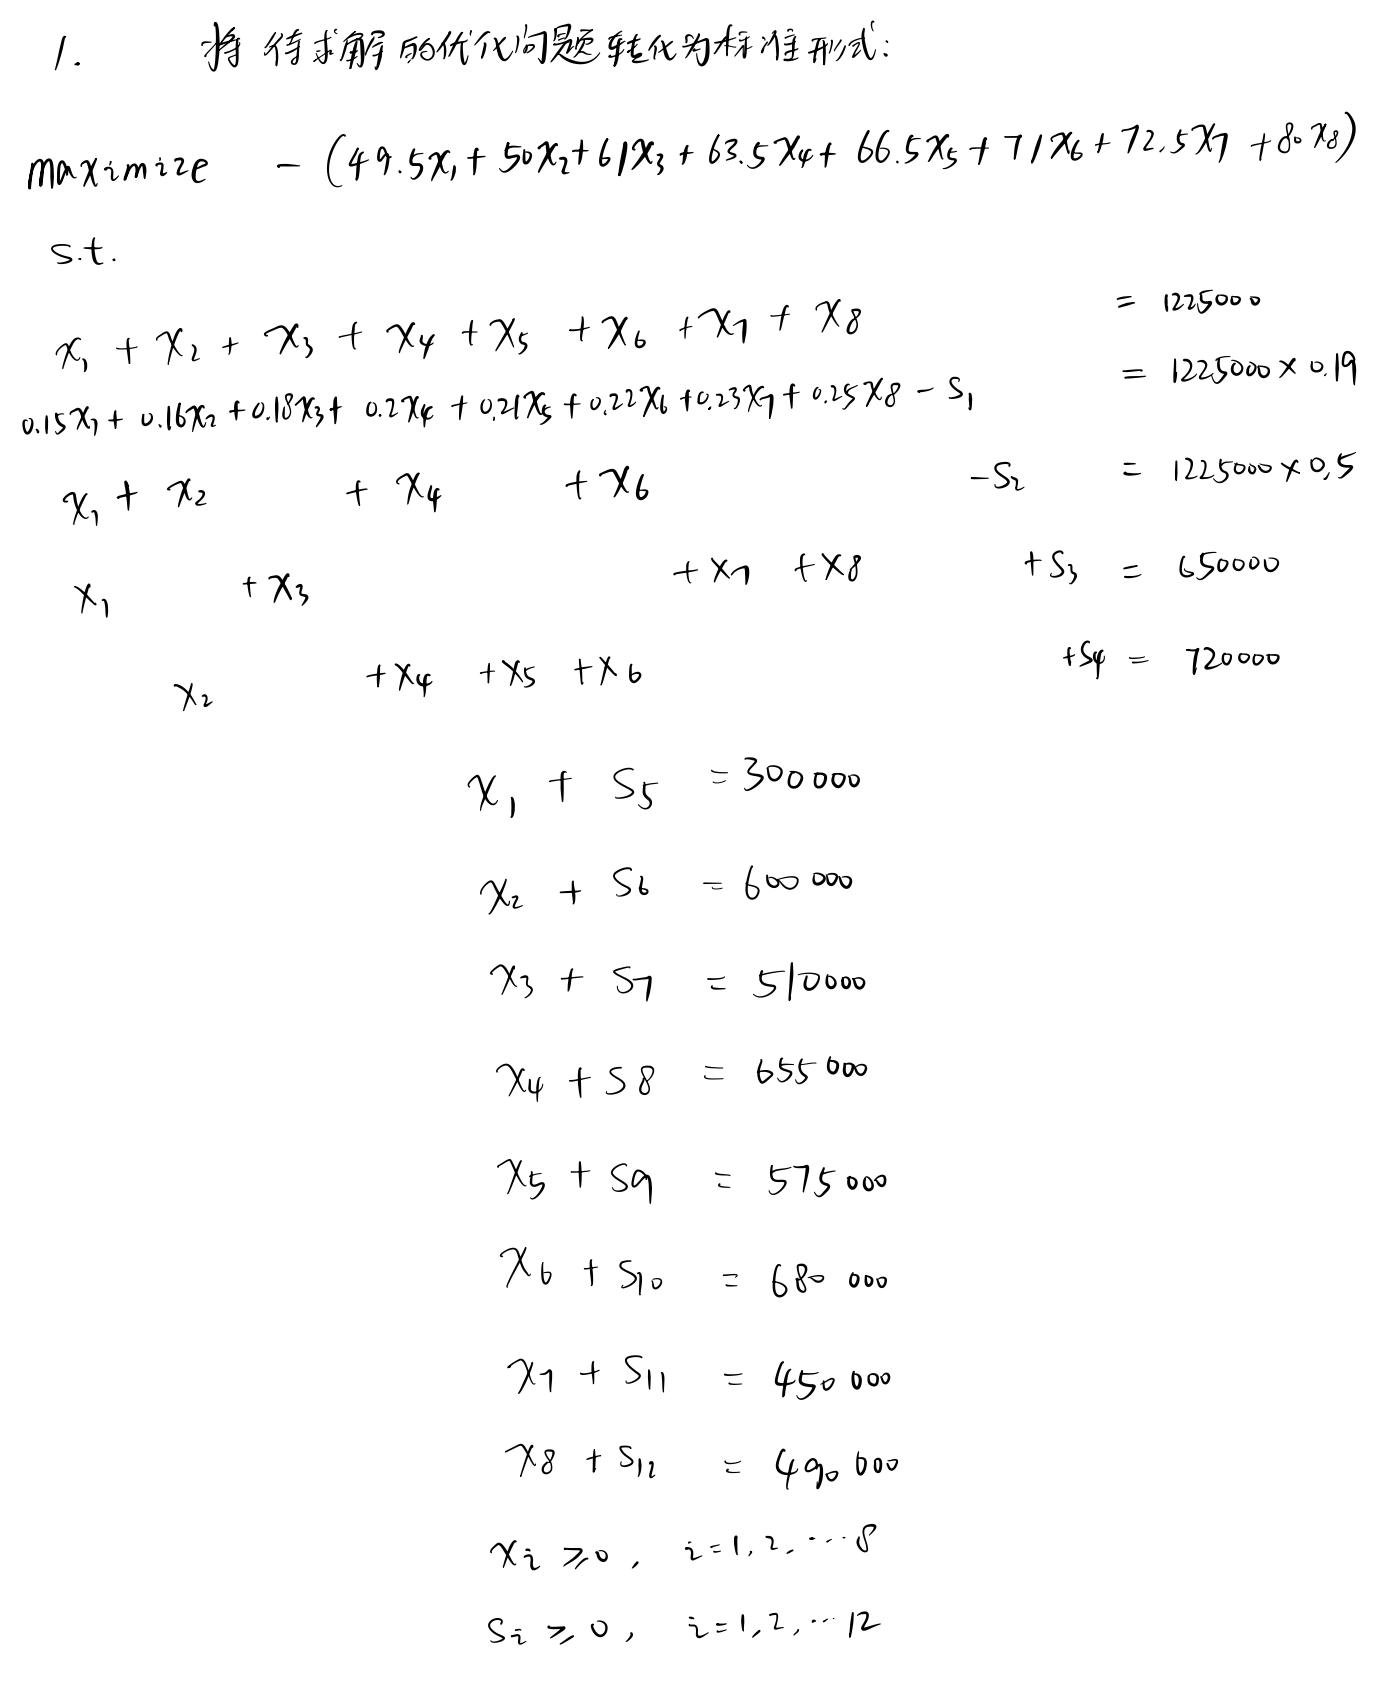 1. 将待求解的优化问题转化为标准形式:
maximize - (49.5x₁ + 50x₂ + 61x₃ + 63.5x₄ + 66.5x₅ + 71x₆ + 72.5x₇ + 80x₈)
s.t.
x₁ + x₂ + x₃ + x₄ + x₅ + x₆ + x₇ + x₈ = 1225000
0.15x₁ + 0.16x₂ + 0.18x₃ + 0.2x₄ + 0.21x₅ + 0.22x₆ + 0.23x₇ + 0.25x₈ - S₁ = 1225000 × 0.19
x₁ + x₂ + x₄ + x₆ - S₂ = 1225000 × 0.5
x₁ + x₃ + x₇ + x₈ + S₃ = 650000
x₂ + x₄ + x₅ + x₆ + S₄ = 720000
x₁ + S₅ = 300000
x₂ + S₆ = 600000
x₃ + S₇ = 510000
x₄ + S₈ = 655000
x₅ + S₉ = 575000
x₆ + S₁₀ = 680000
x₇ + S₁₁ = 450000
x₈ + S₁₂ = 490000
xᵢ ⩾ 0, i = 1, 2, ... 8
Sᵢ ⩾ 0, i = 1, 2, ... 12